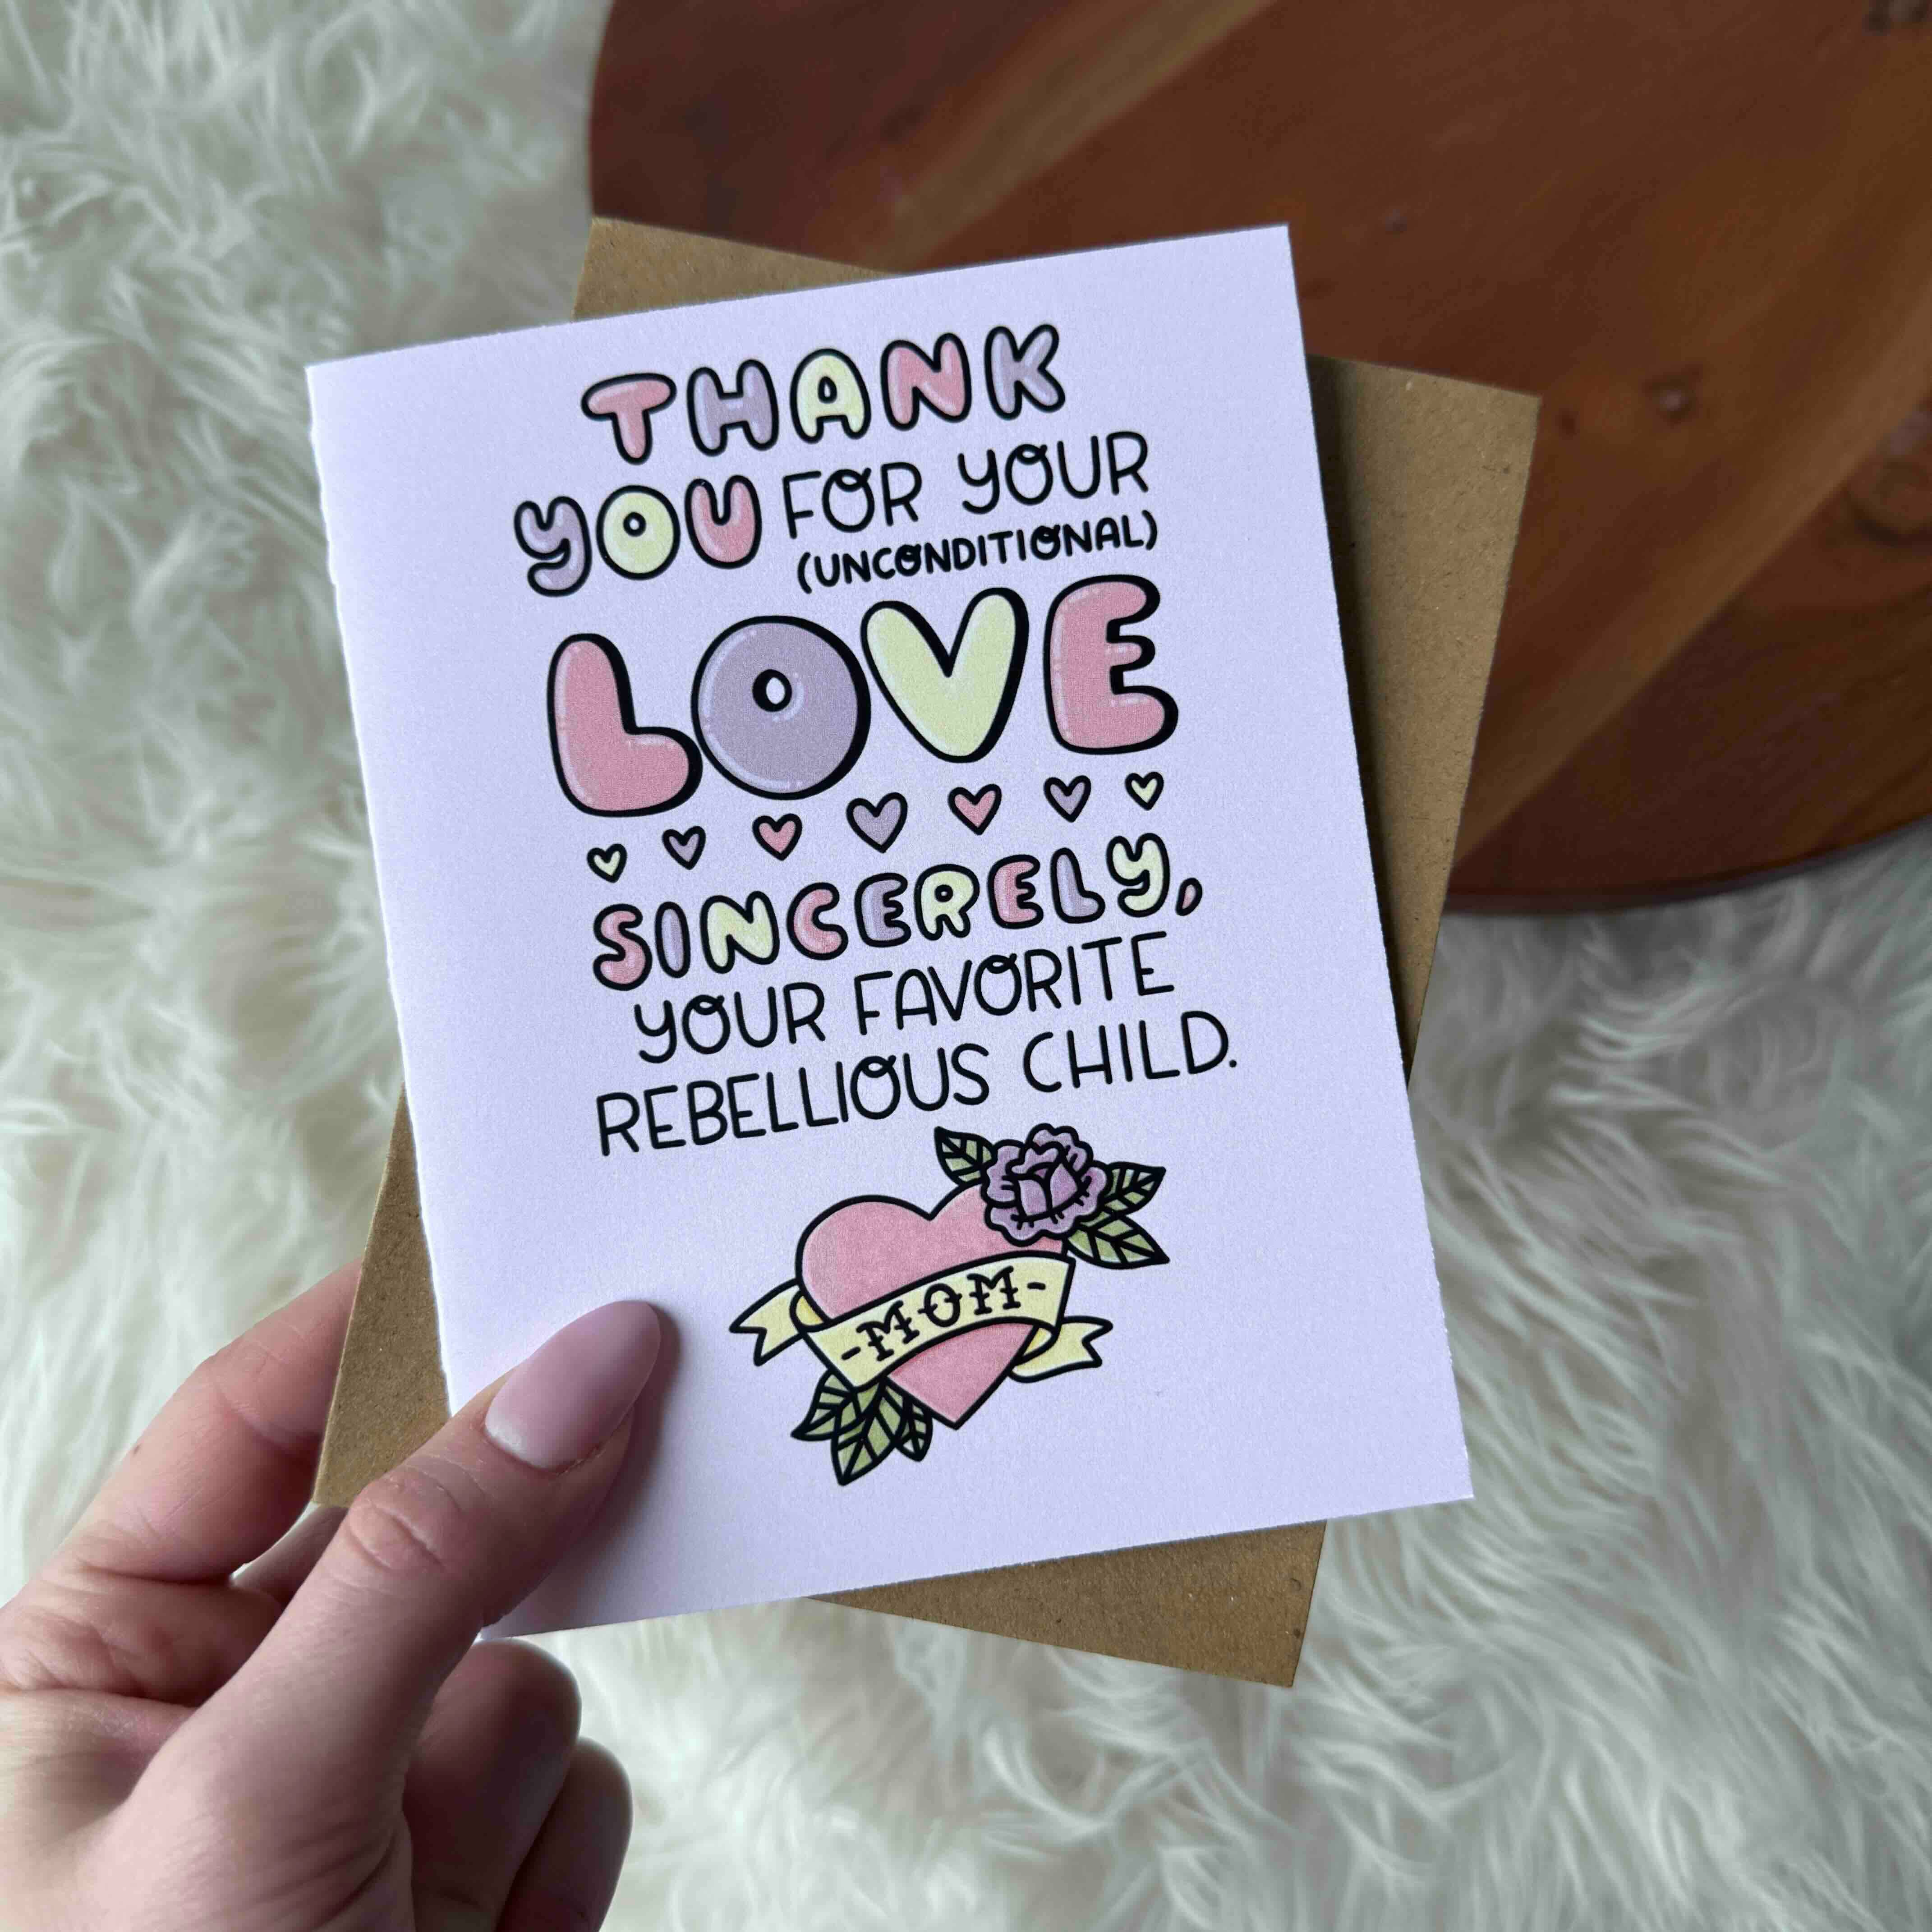 THANK
YOU FOR YOUR
(UNCONDITIONAL)
LOVE
SINCERELY,
YOUR FAVORITE
REBELLIOUS CHILD.
-MOM-